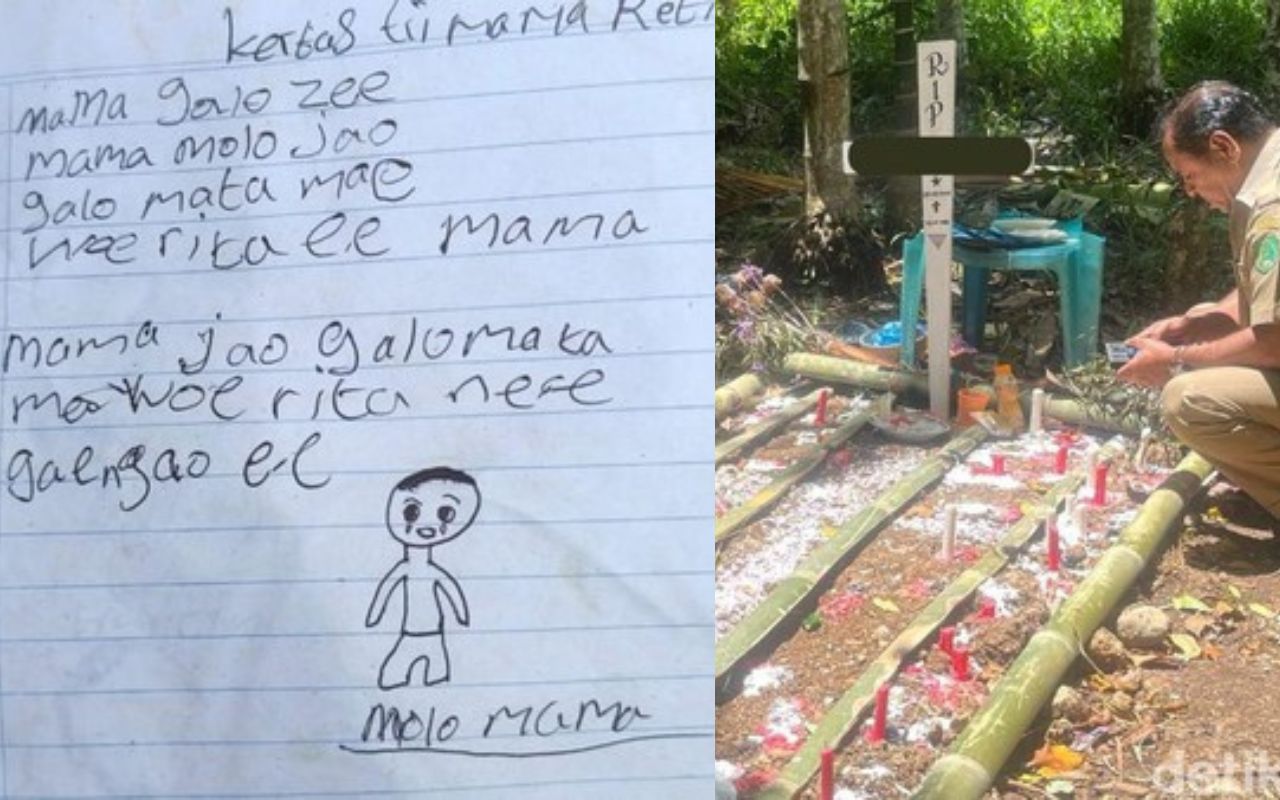 kertas tii mama Reti
mama galo zee
mama molo jao
galo mata mae
woe rita ee mama
mama jao galo mata
mae woe rita nee
gae ngao ee
molo mama
RIP
detik